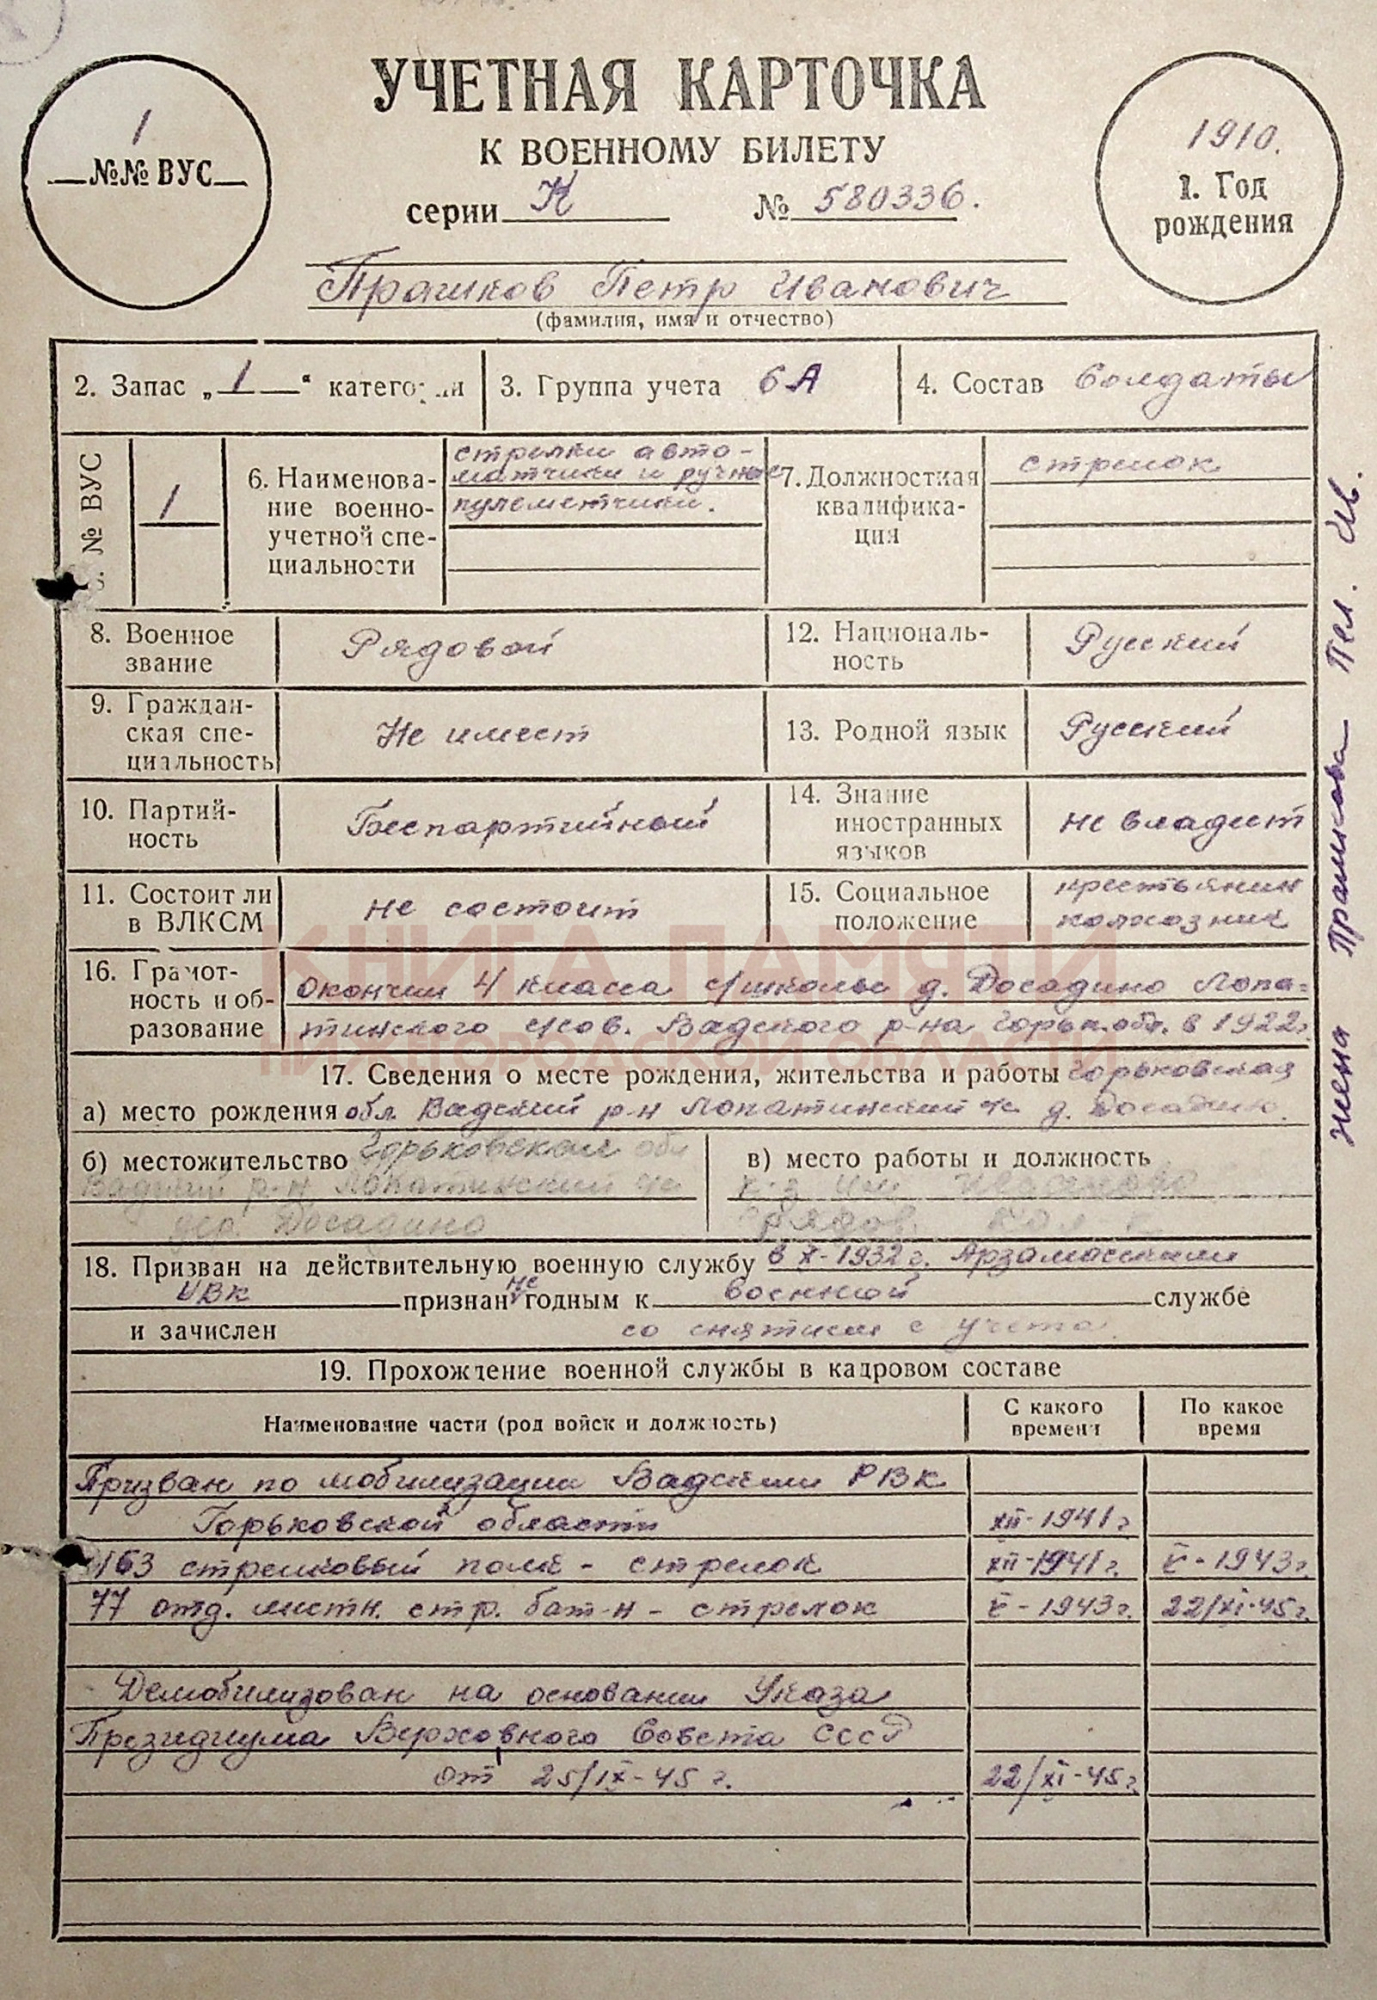 УЧЕТНАЯ КАРТОЧКА
К ВОЕННОМУ БИЛЕТУ
серии К № 580336.
1
№№ ВУС
1910.
1. Год
рождения
Прашков Петр Иванович
(фамилия, имя и отчество)
2. Запас „1" категории
3. Группа учета 6А
4. Состав Солдаты
№ ВУС
1
6. Наименова-
ние военно-
учетной спе-
циальности
стрелки авто-
матчики и ручные
пулеметчики.
7. Должностная
квалифика-
ция
стрелок
8. Военное
звание
Рядовой
12. Националь-
ность
Русский
9. Граждан-
ская спе-
циальность
Не имеет
13. Родной язык
Русский
10. Партий-
ность
Беспартийный
14. Знание
иностранных
языков
не владеет
11. Состоит ли
в ВЛКСМ
не состоит
15. Социальное
положение
крестьянин
колхозник
16. Грамот-
ность и об-
разование
Окончил 4 класса с/школы д. Досадино Лопа-
тинского с/сов. Вадского р-на Горьк.обл. в 1922г.
17. Сведения о месте рождения, жительства и работы Горьковская
а) место рождения обл. Вадский р-н Лопатинский с/с д. Досадино.
б) местожительство Горьковская обл
Вадский р-н Лопатинский с/с
дер. Досадино
в) место работы и должность
к-з им
рядов. кол-к
18. Призван на действительную военную службу в X-1932г. Арзамасским
УВК признан не годным к военной службе
и зачислен со снятием с учета
19. Прохождение военной службы в кадровом составе
Наименование части (род войск и должность)
С какого
времени
По какое
время
Призван по мобилизации Вадским РВК
Горьковской области XII-1941г
1163 стрелковый полк - стрелок XII-1941г. V-1943г.
77 отд. местн. стр. бат-н - стрелок V-1943г. 22/XI-45г.
Демобилизован на основании Указа
Президиума Верховного Совета СССР
от 25/IX-45г. 22/XI-45г.
жена Прашкова Пел. Ив.
КНИГА ПАМЯТИ
НИЖЕГОРОДСКОЙ ОБЛАСТИ